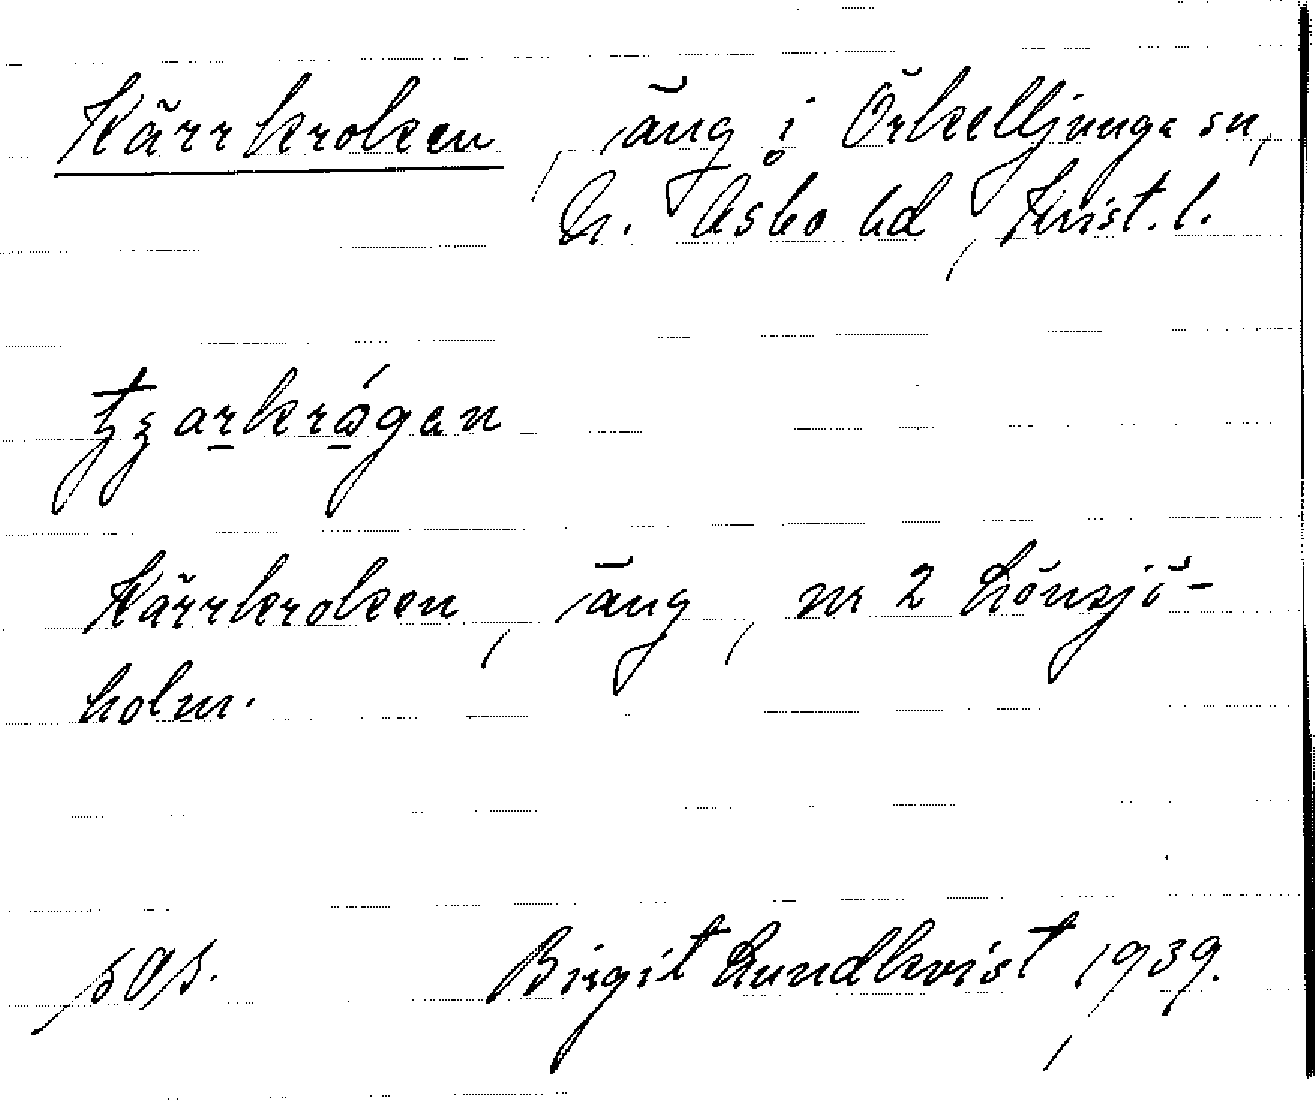 Kärrkroken, äng i Örkelljunga sn,
N. Åsbo hd, Krist. l.
Kärrkroken, äng, nr 2 Lönsjö-
holm.
Birgit Lundkvist, 1939.